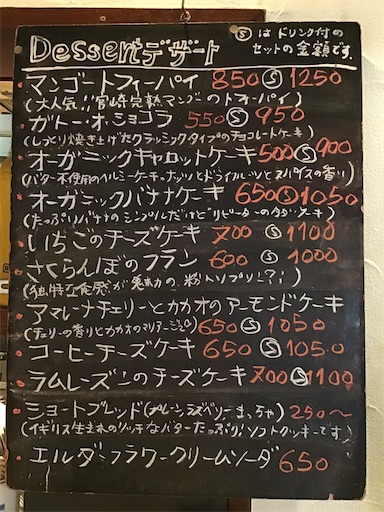 Dessertデザート
Ⓢはドリンク付の
セットの金額です。
マンゴートフィーパイ 850 Ⓢ 1250
(大人気!!宮崎完熟マンゴーのトフィーパイ)
ガトー・オ・ショコラ 550 Ⓢ 950
(しっとり焼き上げたクラシックタイプのチョコレートケーキ)
オーガニックキャロットケーキ 500 Ⓢ 900
(バター不使用のヘルシーケーキ。ナッツとドライフルーツとスパイスの香り)
オーガニックバナナケーキ 650 Ⓢ 1050
(たっぷりバナナのシンプルだけどリピーターの多い
いちごのチーズケーキ 700 Ⓢ 1100
さくらんぼのフラン 600 Ⓢ 1000
(独特な食感が魅力の プリン?!)
アマレーナチェリーとカカオのアーモンドケーキ
(チェリーの香りとカカオのマリアージュ) 650 Ⓢ 1050
コーヒーチーズケーキ 650 Ⓢ 1050
ラムレーズンのチーズケーキ 700 Ⓢ 1100
ショートブレッド(プレーン、ラズベリー、まっちゃ) 250〜
(イギリス生まれのリッチなバターたっぷり!ソフトクッキーです)
エルダーフラワークリームソーダ 650